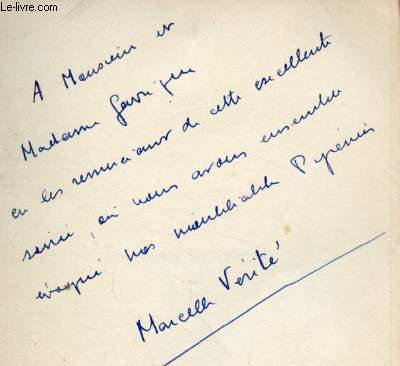 Le-livre.com
A Monsieur et
Madame Garrigue
en les remerciant de cette excellente
soirée, où nous avons ensemble
évoqué nos inoubliables Pyrénées
Marcelle Vérité